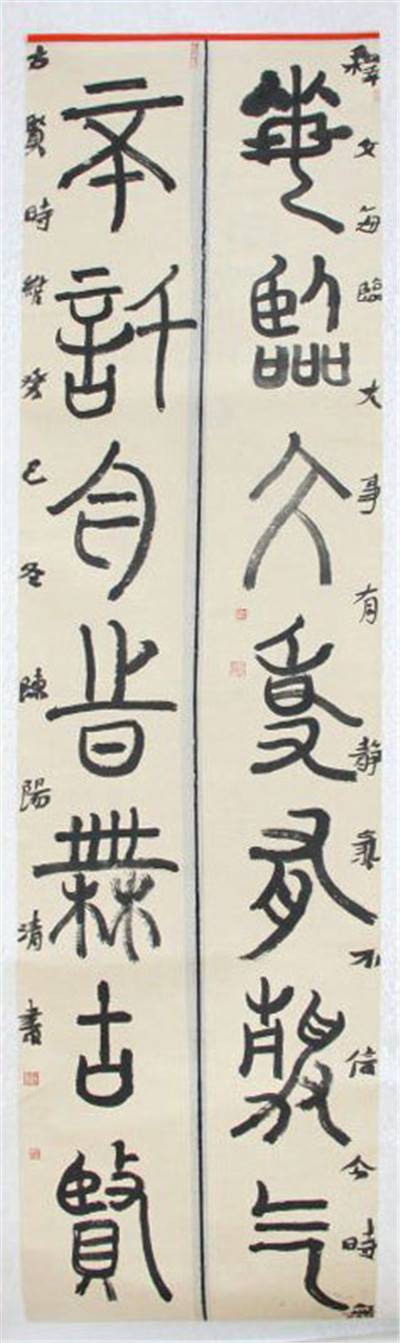 釋文每臨大事有靜氣不信今時無
每臨大事有靜氣
不信今時無古賢
古賢時維癸巳冬陳陽清書